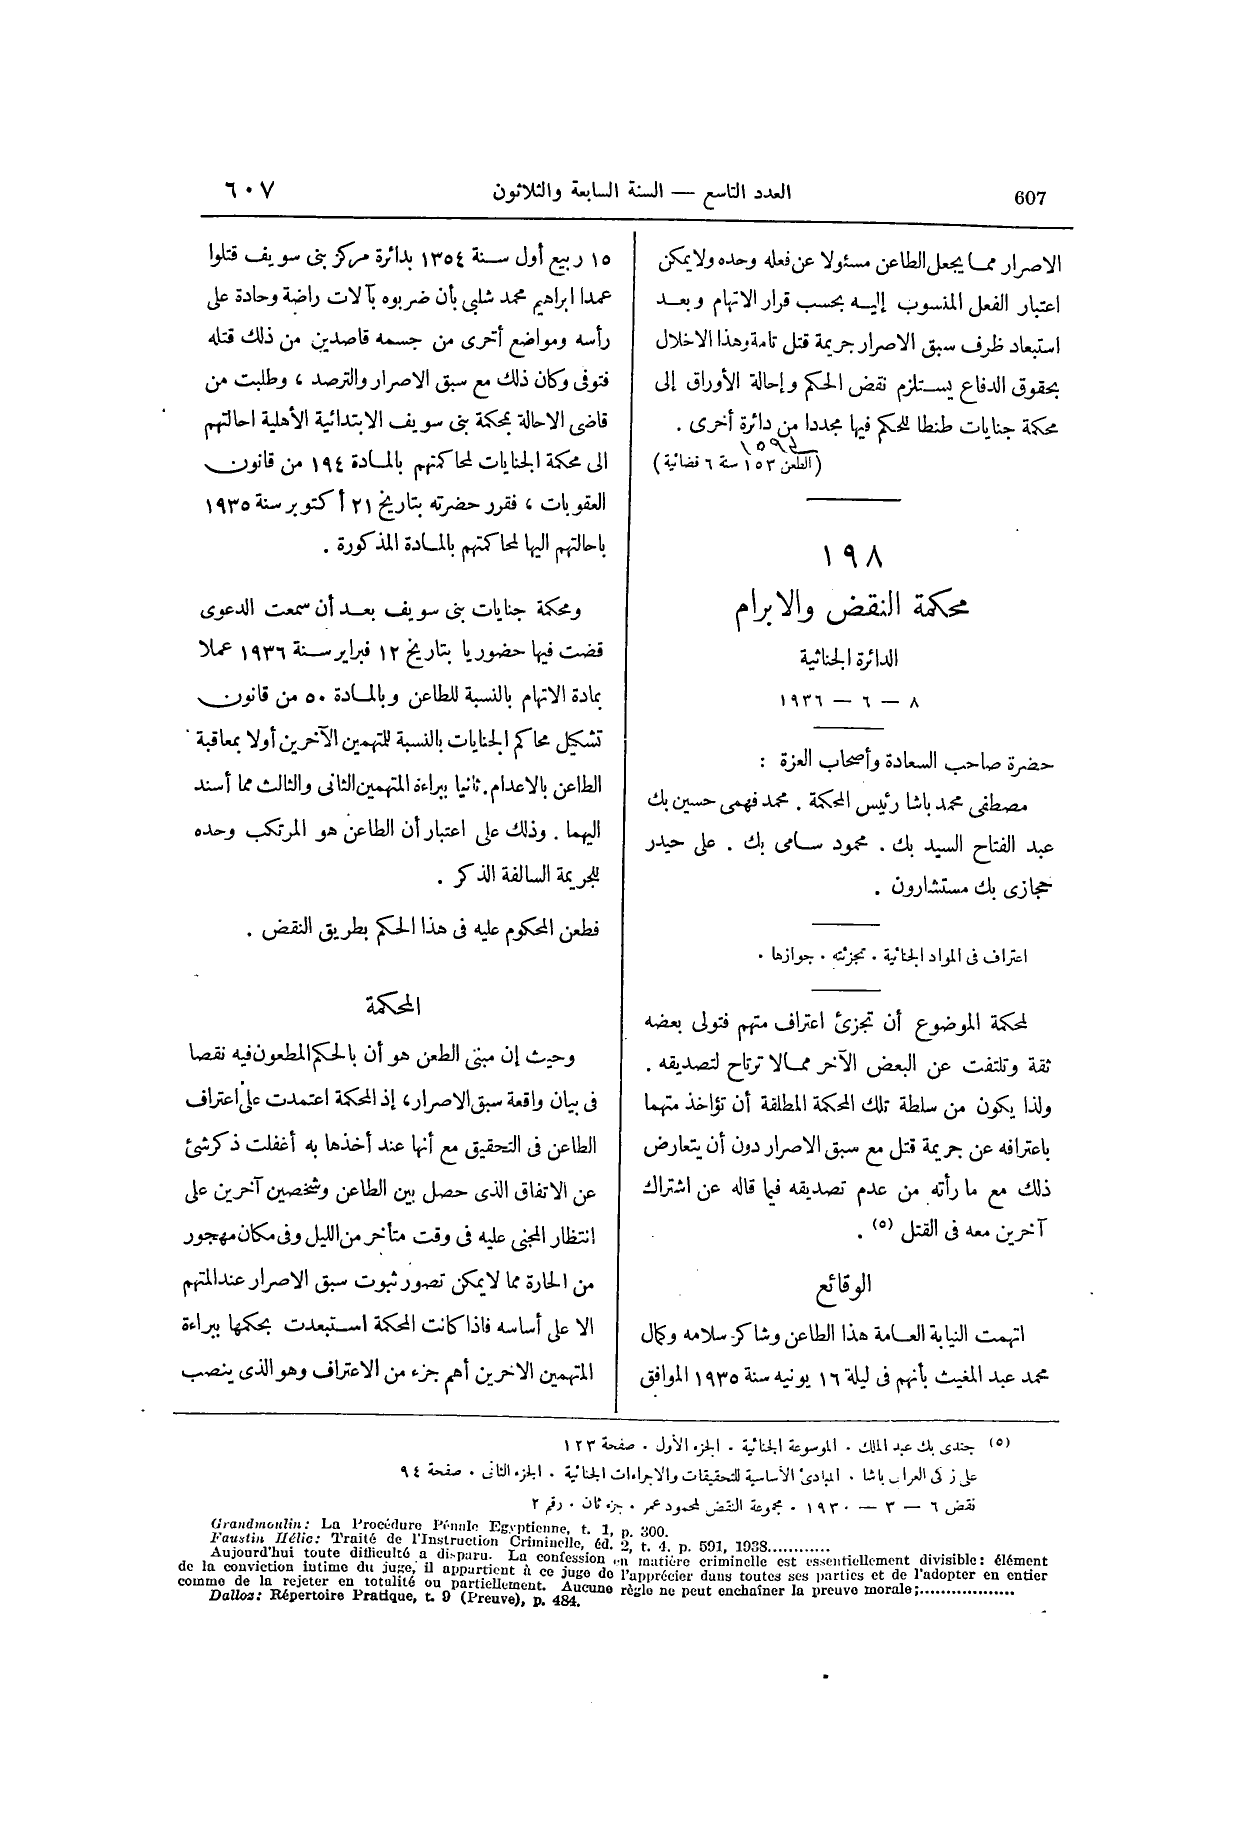 607
العدد التاسع — السنة السابعة والثلاثون
٦٠٧
الاصرار مما يجعل الطاعن مسئولا عن فعله وحده ولا يمكن
اعتبار الفعل المنسوب إليه بحسب قرار الاتهام وبعد
استبعاد ظرف سبق الاصرار جريمة قتل تامة وهذا الاخلال
بحقوق الدفاع يستلزم نقض الحكم وإحالة الأوراق إلى
محكمة جنايات طنطا للحكم فيها مجددا من دائرة أخرى .
(الطعن ١٥٣ سنة ٦ قضائية)
١٩٨
محكمة النقض والابرام
الدائرة الجنائية
٨ — ٦ — ١٩٣٦
حضرة صاحب السعادة وأصحاب العزة :
مصطفى محمد باشا رئيس المحكمة . محمد فهمى حسين بك
عبد الفتاح السيد بك . محمود سامى بك . على حيدر
حجازى بك مستشارون .
اعتراف فى المواد الجنائية . تجزئته . جوازها .
لمحكمة الموضوع أن تجزئ اعتراف متهم فتولى بعضه
ثقة وتلتفت عن البعض الآخر ممالا ترتاح لتصديقه .
ولذا يكون من سلطة تلك المحكمة المطلقة أن تؤاخذ متهما
باعترافه عن جريمة قتل مع سبق الاصرار دون أن يتعارض
ذلك مع ما رأته من عدم تصديقه فيما قاله عن اشتراك
آخرين معه فى القتل (٥) .
الوقائع
اتهمت النيابة العامة هذا الطاعن وشاكر سلامه وكمال
محمد عبد المغيث بأنهم فى ليلة ١٦ يونيه سنة ١٩٣٥ الموافق
١٥ ربيع أول سنة ١٣٥٤ بدائرة مركز بنى سويف قتلوا
عمدا ابراهيم محمد شلبى بأن ضربوه بآلات راضة وحادة على
رأسه ومواضع أخرى من جسمه قاصدين من ذلك قتله
فتوفى وكان ذلك مع سبق الاصرار والترصد ، وطلبت من
قاضى الاحالة بمحكمة بنى سويف الابتدائية الأهلية احالتهم
الى محكمة الجنايات لمحاكمتهم بالمادة ١٩٤ من قانون
العقوبات ، فقرر حضرته بتاريخ ٢١ أكتوبر سنة ١٩٣٥
باحالتهم اليها لمحاكمتهم بالمادة المذكورة .
ومحكمة جنايات بنى سويف بعد أن سمعت الدعوى
قضت فيها حضوريا بتاريخ ١٢ فبراير سنة ١٩٣٦ عملا
بمادة الاتهام بالنسبة للطاعن وبالمادة ٥٠ من قانون
تشكيل محاكم الجنايات بالنسبة للمتهمين الآخرين أولا بمعاقبة
الطاعن بالاعدام. ثانيا ببراءة المتهمين الثانى والثالث مما أسند
اليهما . وذلك على اعتبار أن الطاعن هو المرتكب وحده
للجريمة السالفة الذكر .
فطعن المحكوم عليه فى هذا الحكم بطريق النقض .
المحكمة
وحيث إن مبنى الطعن هو أن بالحكم المطعون فيه نقصا
فى بيان واقعة سبق الاصرار، إذ المحكمة اعتمدت على اعتراف
الطاعن فى التحقيق مع أنها عند أخذها به أغفلت ذكر شئ
عن الاتفاق الذى حصل بين الطاعن وشخصين آخرين على
انتظار المجنى عليه فى وقت متأخر من الليل وفى مكان مهجور
من الحارة مما لا يمكن تصور ثبوت سبق الاصرار عند المتهم
الا على أساسه فاذا كانت المحكمة استبعدت بحكمها ببراءة
المتهمين الاخرين أهم جزء من الاعتراف وهو الذى ينصب
(٥) جندى بك عبد الملك . الموسوعة الجنائية . الجزء الأول . صفحة ١٢٣
على زكى العرابى باشا . المبادئ الأساسية للتحقيقات والاجراءات الجنائية . الجزء الثانى . صفحة ٩٤
نقض ٦ — ٣ — ١٩٣٠ . مجموعة النقض لمحمود عمر . جزء ثان . رقم ٢
Grandmoulin: La Procédure Pénale Egyptienne, t. 1, p. 300.
Faustin Hélie: Traité de l'Instruction Criminelle, éd. 2, t. 4. p. 591, 1938............
Aujourd'hui toute difficulté a disparu. La confession en matière criminelle est essentiellement divisible: élément
de la conviction intime du juge, il appartient à ce juge de l'apprécier dans toutes ses parties et de l'adopter en entier
comme de la rejeter en totalité ou partiellement. Aucune règle ne peut enchaîner la preuve morale;.................
Dalloz: Répertoire Pratique, t. 9 (Preuve), p. 484.